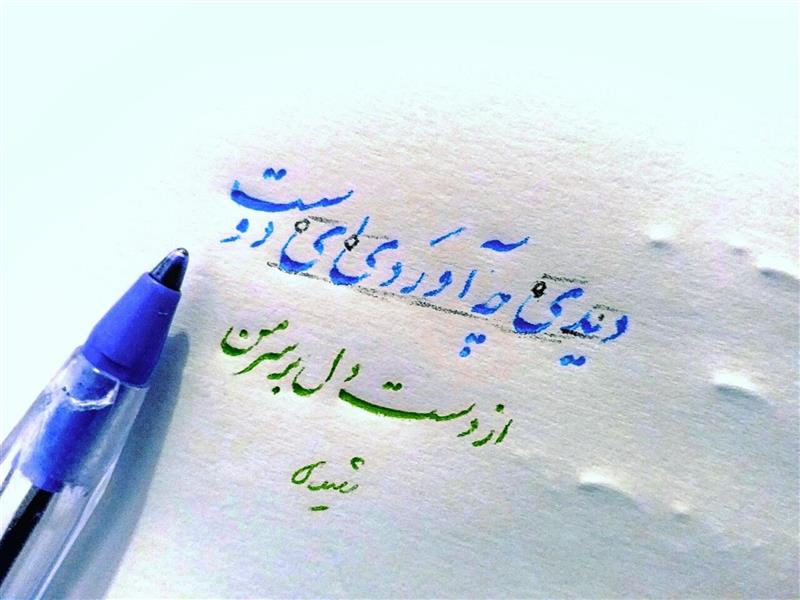 دیدی چه آوَردی ای دوست
از دست دل بر سر من